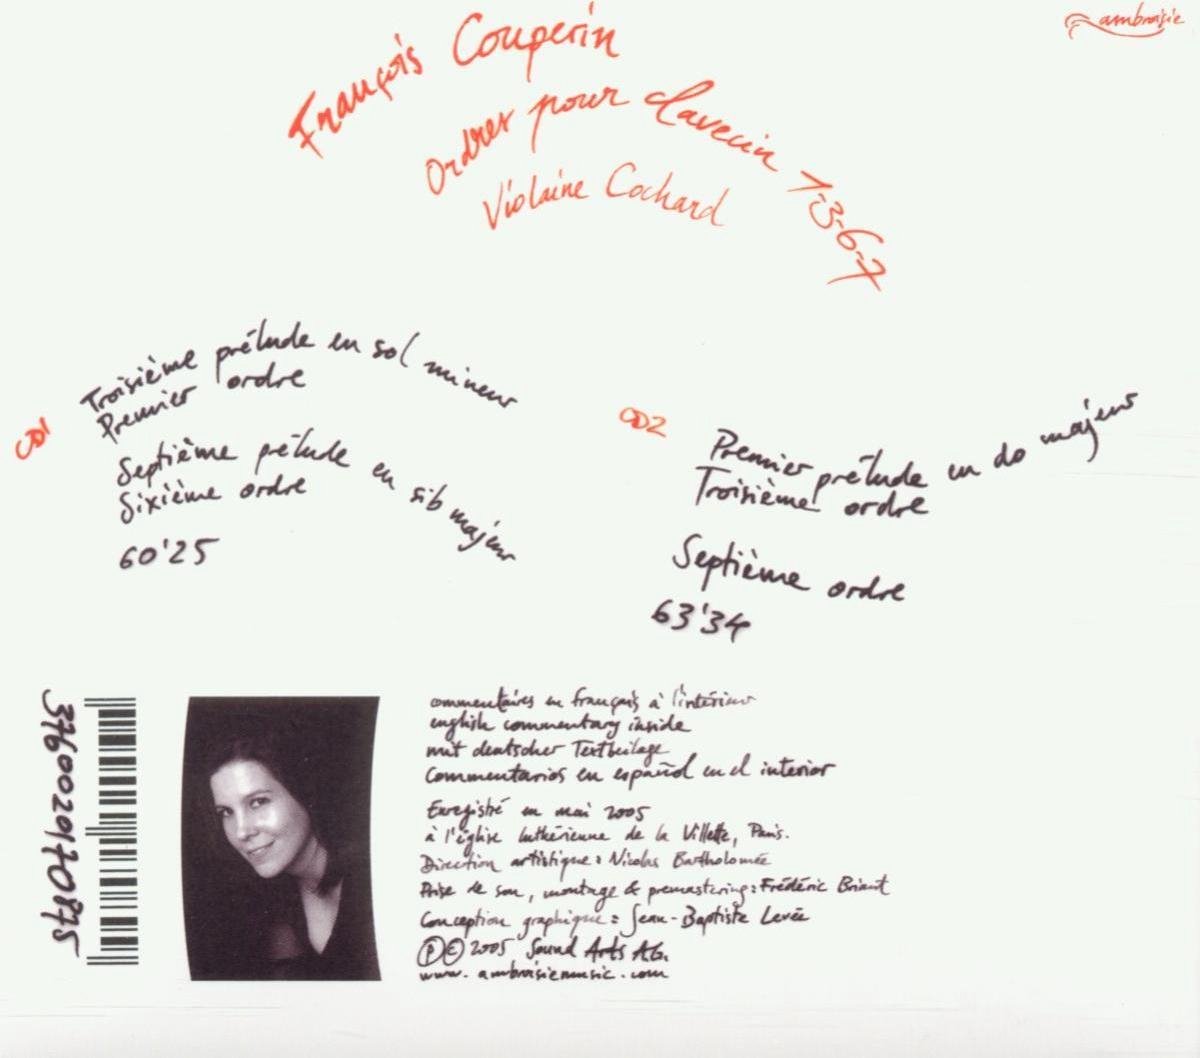 ambroisie
François Couperin
Ordres pour clavecin 1-3-6-7
Violaine Cochard
CD1
Troisième prélude en sol mineur
Premier ordre
Septième prélude en sib majeur
Sixième ordre
60'25
CD2
Premier prélude en do majeur
Troisième ordre
Septième ordre
63'34
3760020170875
commentaires en français à l'intérieur
english commentary inside
mit deutscher Textbeilage
commentarios en español en el interior
Enregistré en mai 2005
à l'église luthérienne de la Villette, Paris.
Direction artistique : Nicolas Bartholomée
Prise de son, montage & premastering : Frédéric Briant
Conception graphique : Jean-Baptiste Levée
Ⓟ © 2005 Sound Arts AG.
www.ambroisiemusic.com